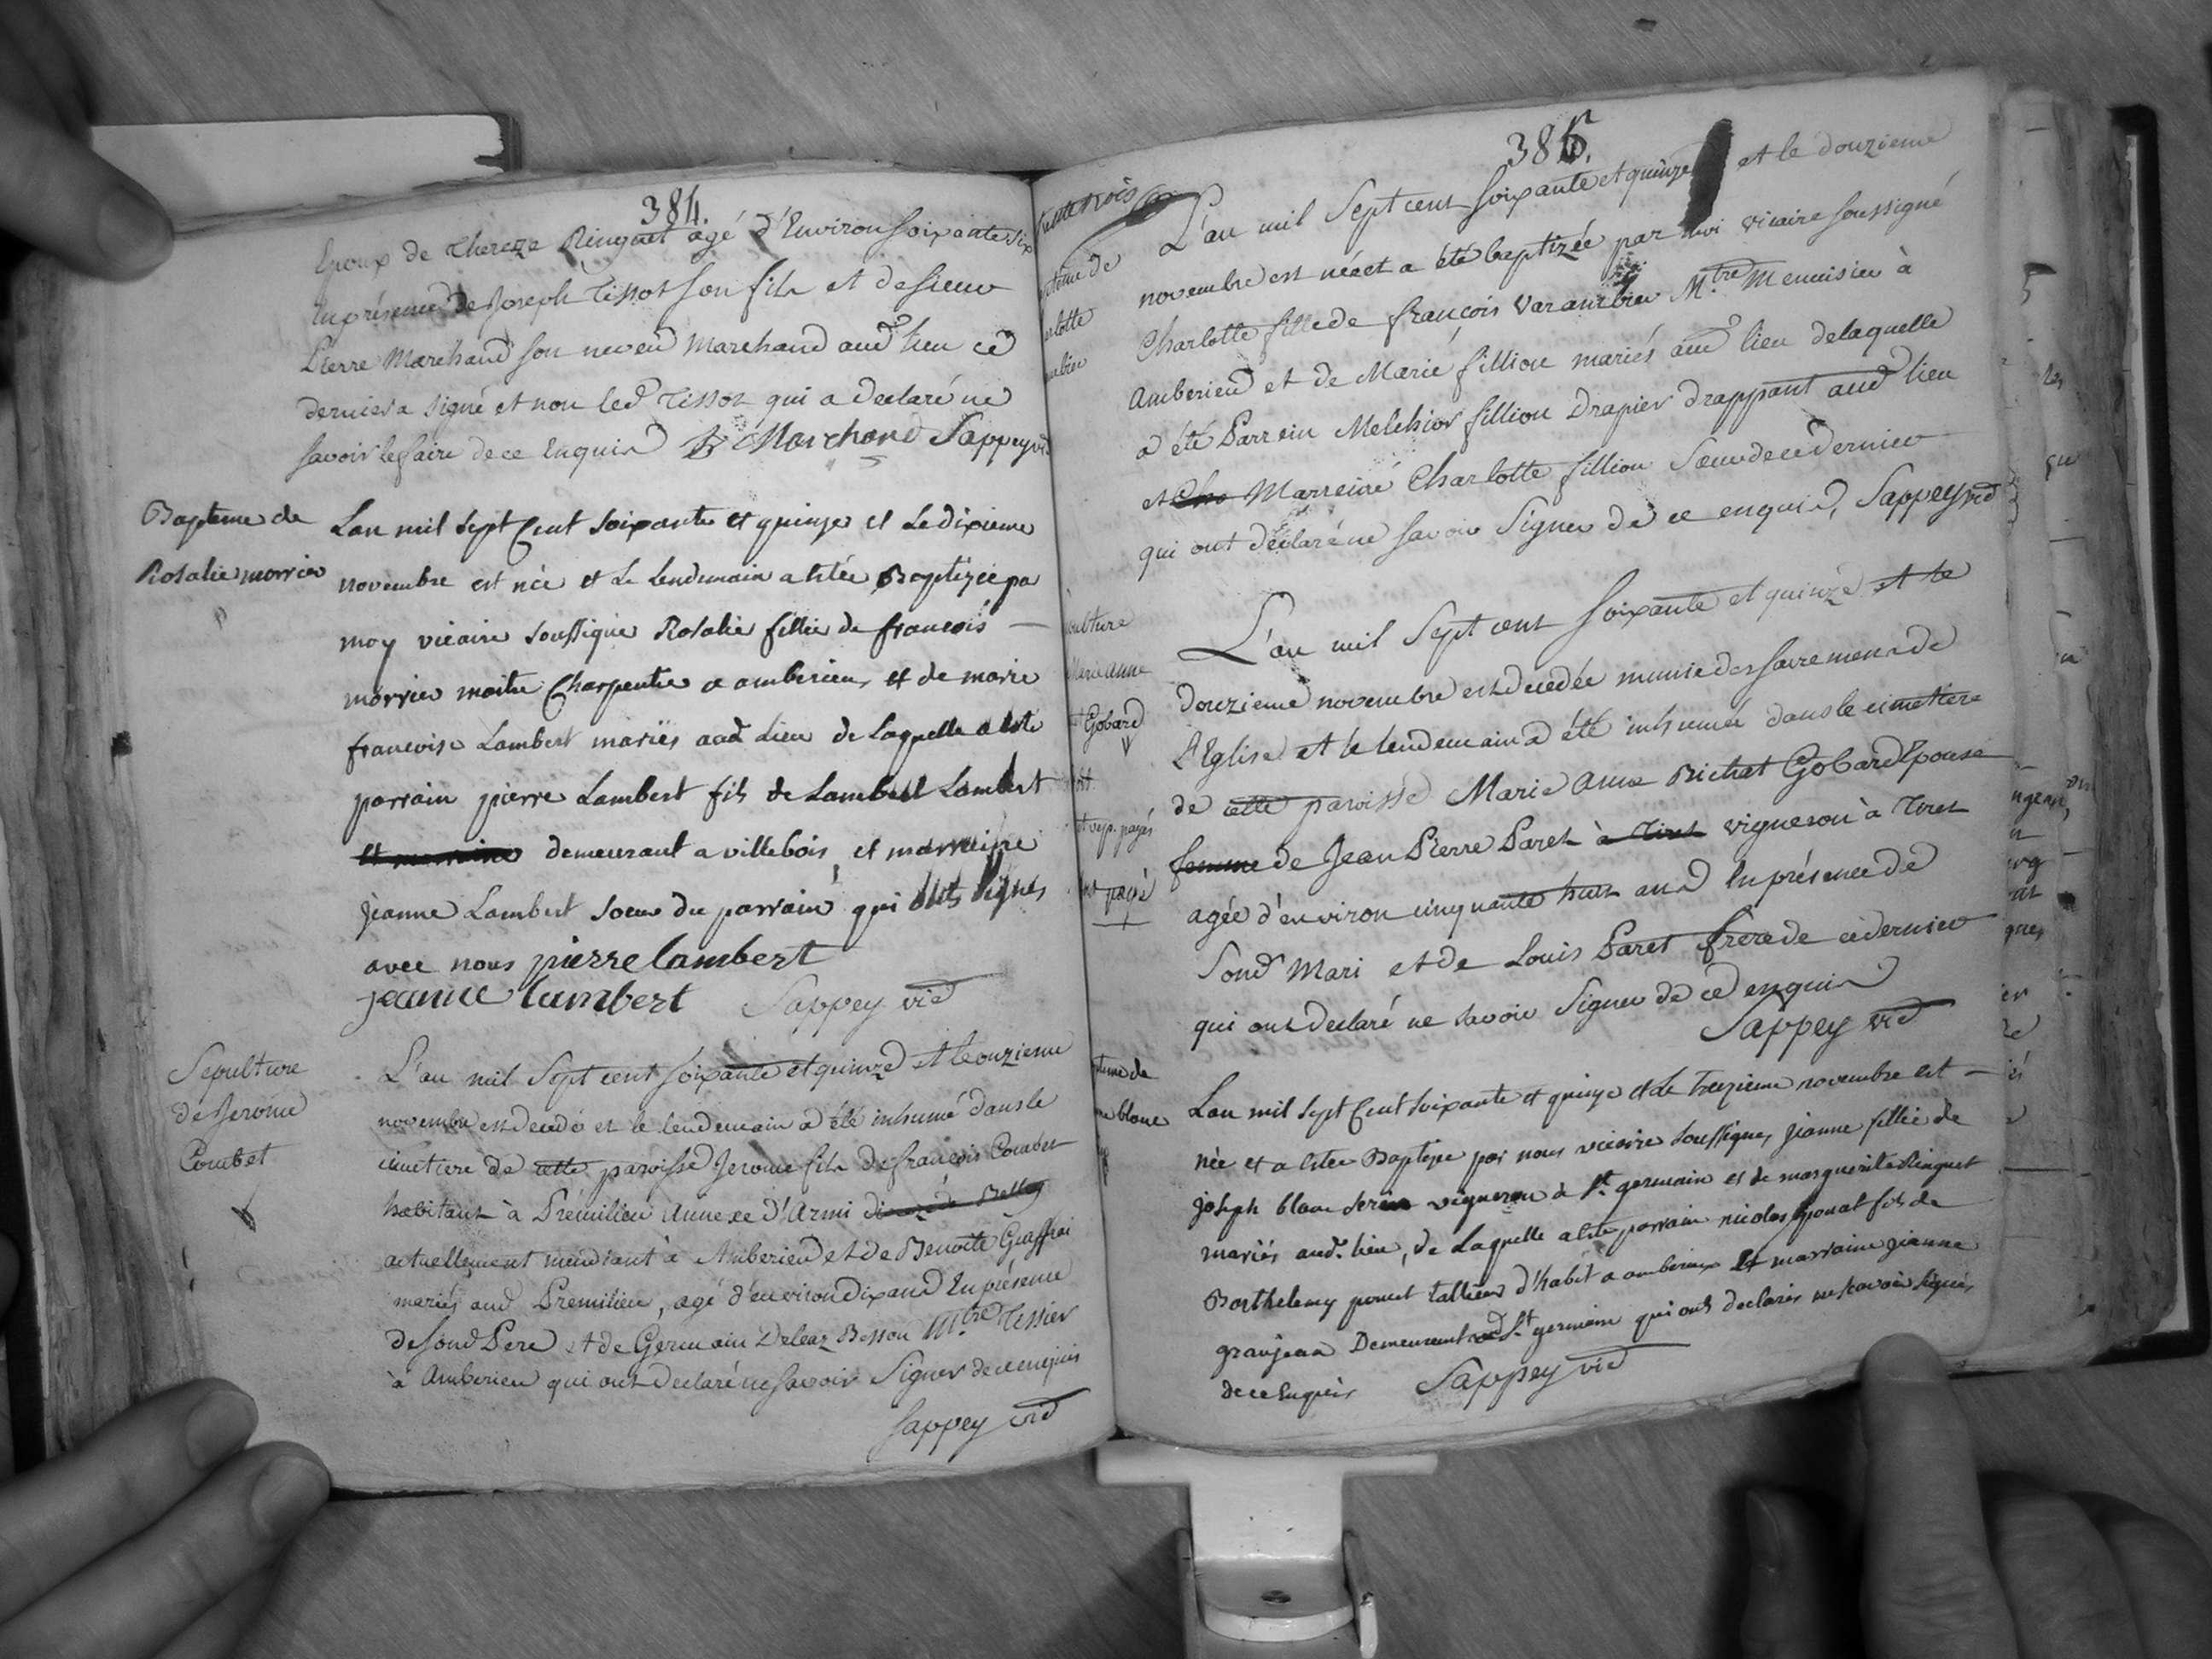 384.
Epoux de Thereze Ringuet agé d'Environ soixante six
En présence de Joseph Tissot son fils et de sieur
Pierre Marchand son neveu Marchand aud lieu ce
dernier a signé et non led Tissot qui a declaré ne
savoir le faire de ce Enquis Marchand Sappey vic
Bapteme de
Rosalie morrier
Lan mil sept Cent soixante et quinze et Le dixieme
novembre est née et Le Lendemain a estée Baptizée pa
moy vicaire soussigné Rosalie fillie de francois
morrier maitre Charpentier a amberieux et de marie
francoise Lambert mariés aud Lieu de Laquelle a esté
parrain pierre Lambert fils de Lambert Lambert
et marraine demeurant a villebois et marraine
jeanne Lambert soeur du parrain qui ont signés
avec nous pierre lambert
jeanne lambert Sappey vic
Sepulture
de Jerome
Combet
L'an mil sept cent soixante et quinze et le onzieme
novembre est decedé et le lendemain a été inhumé dans le
cimetiere de cette paroisse Jerome fils de francois Combet
habitant à Prémilieu annexe d'Armi
actuellement mendiant à Amberieu et de Benoite
mariés aud Premilieu, agé d'environ dix ans En présence
de sond Pere et de Germain Deleaz Besson M.tre Tessier
à Amberieu qui ont declaré ne savoir Signer de ce enquis
Sappey vic
385.
teme de
rlotte
mbieu
L'an mil Sept cent soixante et quinze et le douzieme
novembre est née et a été baptizée par moi vicaire soussigné
Charlotte fille de françois Varambieu M.tre Menuisier à
Amberieu et de Marie fillion mariés aud lieu de laquelle
a été Parrein Melchior fillion Drapier drappant aud lieu
et Cha Marreine Charlotte fillion Soeur de ce dernier
qui ont déclaré ne savoir Signer de ce enquis, Sappey vic
ulture
Marie anne
Gobard
et rep. payés
payé
L'an mil Sept cent soixante et quinze et le
douzieme novembre est decedée munie des sacremens de
l'Eglise et le lendemain a été inhumée dans le cimetiere
de cette paroisse Marie Anne Bichat Gobard Epouse
femme de Jean Pierre Paret à Tiret vigneron à Tiret
agée d'environ cinquante huit ans En présence de
Sond Mari et de Louis Paret frere de ce dernier
qui ont declaré ne savoir Signer de ce enquis
Sappey vic
teme de
ne blanc
Lan mil sept Cent soixante et quinze et Le treizieme novembre est
née et a estée Baptize par nous vicaire soussigné, jeanne fillie de
joseph blanc vigneron à St germain et de marguerite Ringuet
mariés aud. lieu, de Laquelle a esté parrain nicolas ponat fils de
Barthelemy poncet tallieur d'habit a amberieux et marraine jeanne
granjean Demeurant aud St germain qui ont declarés ne scavoir signer,
de ce Enquis Sappey vic